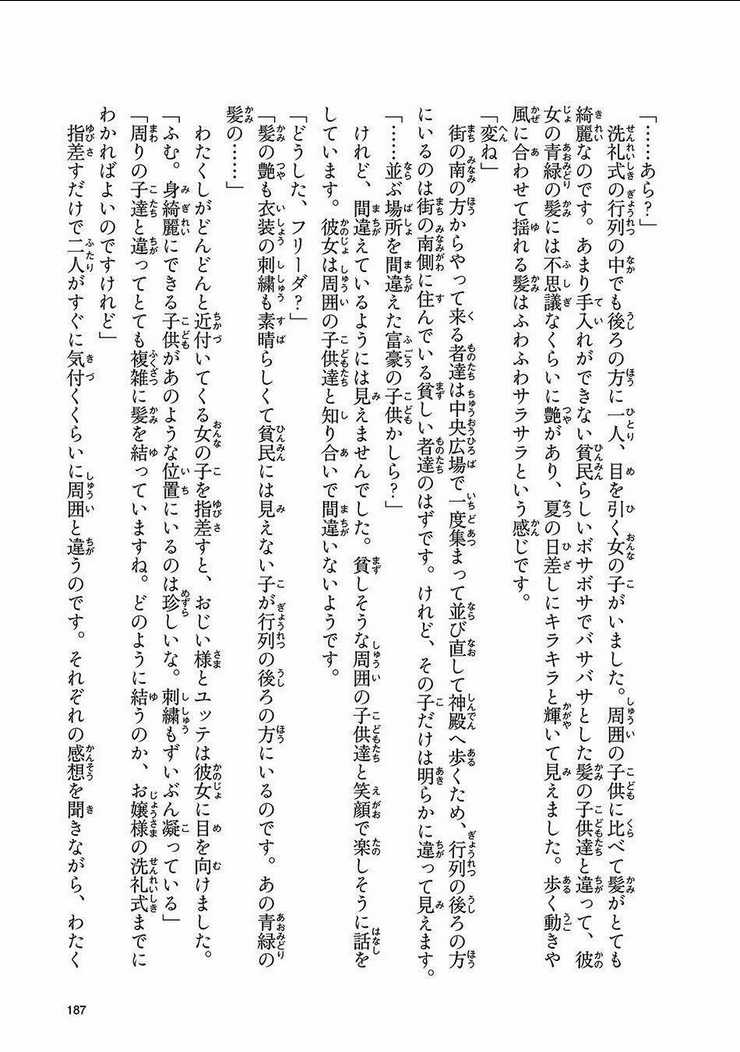 「……あら？」
　洗礼式の行列の中でも後ろの方に一人、目を引く女の子がいました。周囲の子供に比べて髪がとても
綺麗なのです。あまり手入れができない貧民らしいボサボサでバサバサとした髪の子供達と違って、彼
女の青緑の髪には不思議なくらいに艶があり、夏の日差しにキラキラと輝いて見えました。歩く動きや
風に合わせて揺れる髪はふわふわサラサラという感じです。
「変ね」
　街の南の方からやって来る者達は中央広場で一度集まって並び直して神殿へ歩くため、行列の後ろの方
にいるのは街の南側に住んでいる貧しい者達のはずです。けれど、その子だけは明らかに違って見えます。
「……並ぶ場所を間違えた富豪の子供かしら？」
　けれど、間違えているようには見えませんでした。貧しそうな周囲の子供達と笑顔で楽しそうに話を
しています。彼女は周囲の子供達と知り合いで間違いないようです。
「どうした、フリーダ？」
「髪の艶も衣装の刺繍も素晴らしくて貧民には見えない子が行列の後ろの方にいるのです。あの青緑の
髪の……」
　わたくしがどんどんと近付いてくる女の子を指差すと、おじい様とユッテは彼女に目を向けました。
「ふむ。身綺麗にできる子供があのような位置にいるのは珍しいな。刺繍もずいぶん凝っている」
「周りの子達と違ってとても複雑に髪を結っていますね。どのように結うのか、お嬢様の洗礼式までに
わかればよいのですけれど」
　指差すだけで二人がすぐに気付くくらいに周囲と違うのです。それぞれの感想を聞きながら、わたく
187